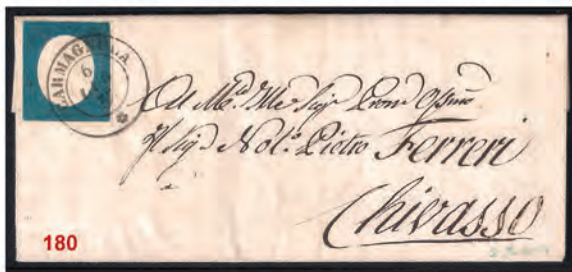 CARMAGNOLA
6
Al M.to Ill.e Sig.r Pron. Oss.mo
Il Sig.r Not.o Pietro Ferreri
Chivasso
180